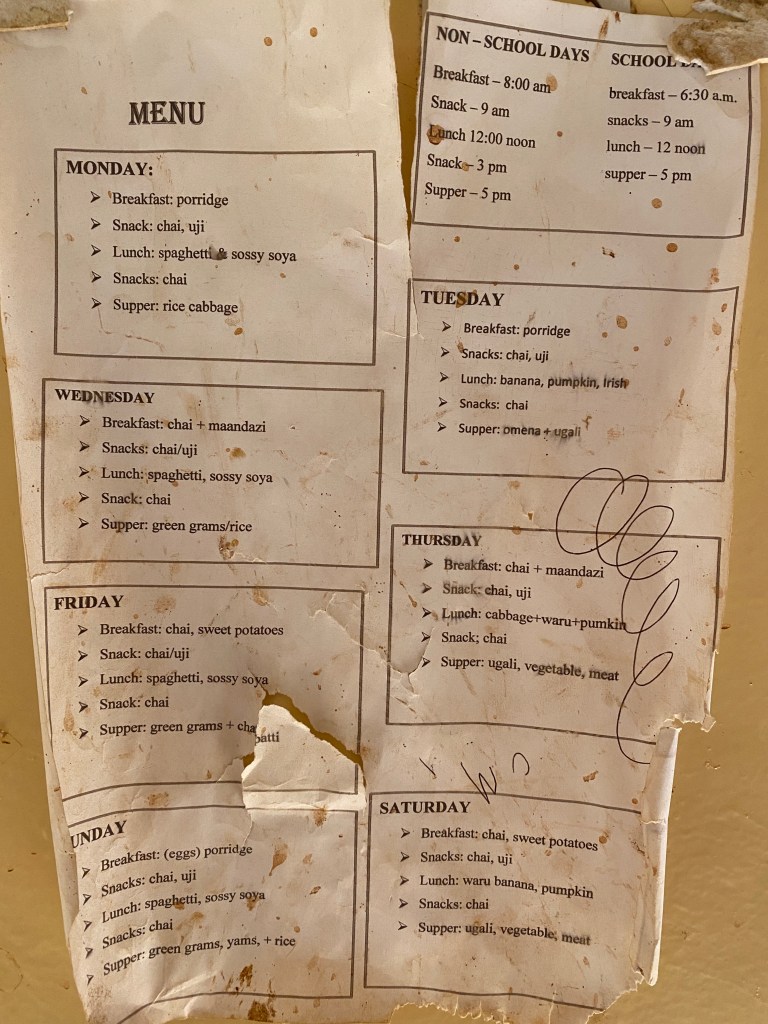 MENU
MONDAY:
➢ Breakfast: porridge
➢ Snack: chai, uji
➢ Lunch: spaghetti & sossy soya
➢ Snacks: chai
➢ Supper: rice cabbage
NON – SCHOOL DAYS
Breakfast – 8:00 am
Snack – 9 am
Lunch 12:00 noon
Snack – 3 pm
Supper – 5 pm
SCHOOL
breakfast – 6:30 a.m.
snacks – 9 am
lunch – 12 noon
supper – 5 pm
TUESDAY
➢ Breakfast: porridge
➢ Snacks: chai, uji
➢ Lunch: banana, pumpkin, Irish
➢ Snacks: chai
➢ Supper: omena + ugali
WEDNESDAY
➢ Breakfast: chai + maandazi
➢ Snacks: chai/uji
➢ Lunch: spaghetti, sossy soya
➢ Snack: chai
➢ Supper: green grams/rice
THURSDAY
➢ Breakfast: chai + maandazi
➢ Snack: chai, uji
➢ Lunch: cabbage+waru+pumkin
➢ Snack; chai
➢ Supper: ugali, vegetable, meat
FRIDAY
➢ Breakfast: chai, sweet potatoes
➢ Snack: chai/uji
➢ Lunch: spaghetti, sossy soya
➢ Snack: chai
➢ Supper: green grams + chapatti
SATURDAY
➢ Breakfast: chai, sweet potatoes
➢ Snacks: chai, uji
➢ Lunch: waru banana, pumpkin
➢ Snacks: chai
➢ Supper: ugali, vegetable, meat
UNDAY
➢ Breakfast: (eggs) porridge
➢ Snacks: chai, uji
➢ Lunch: spaghetti, sossy soya
➢ Snacks: chai
➢ Supper: green grams, yams, + rice